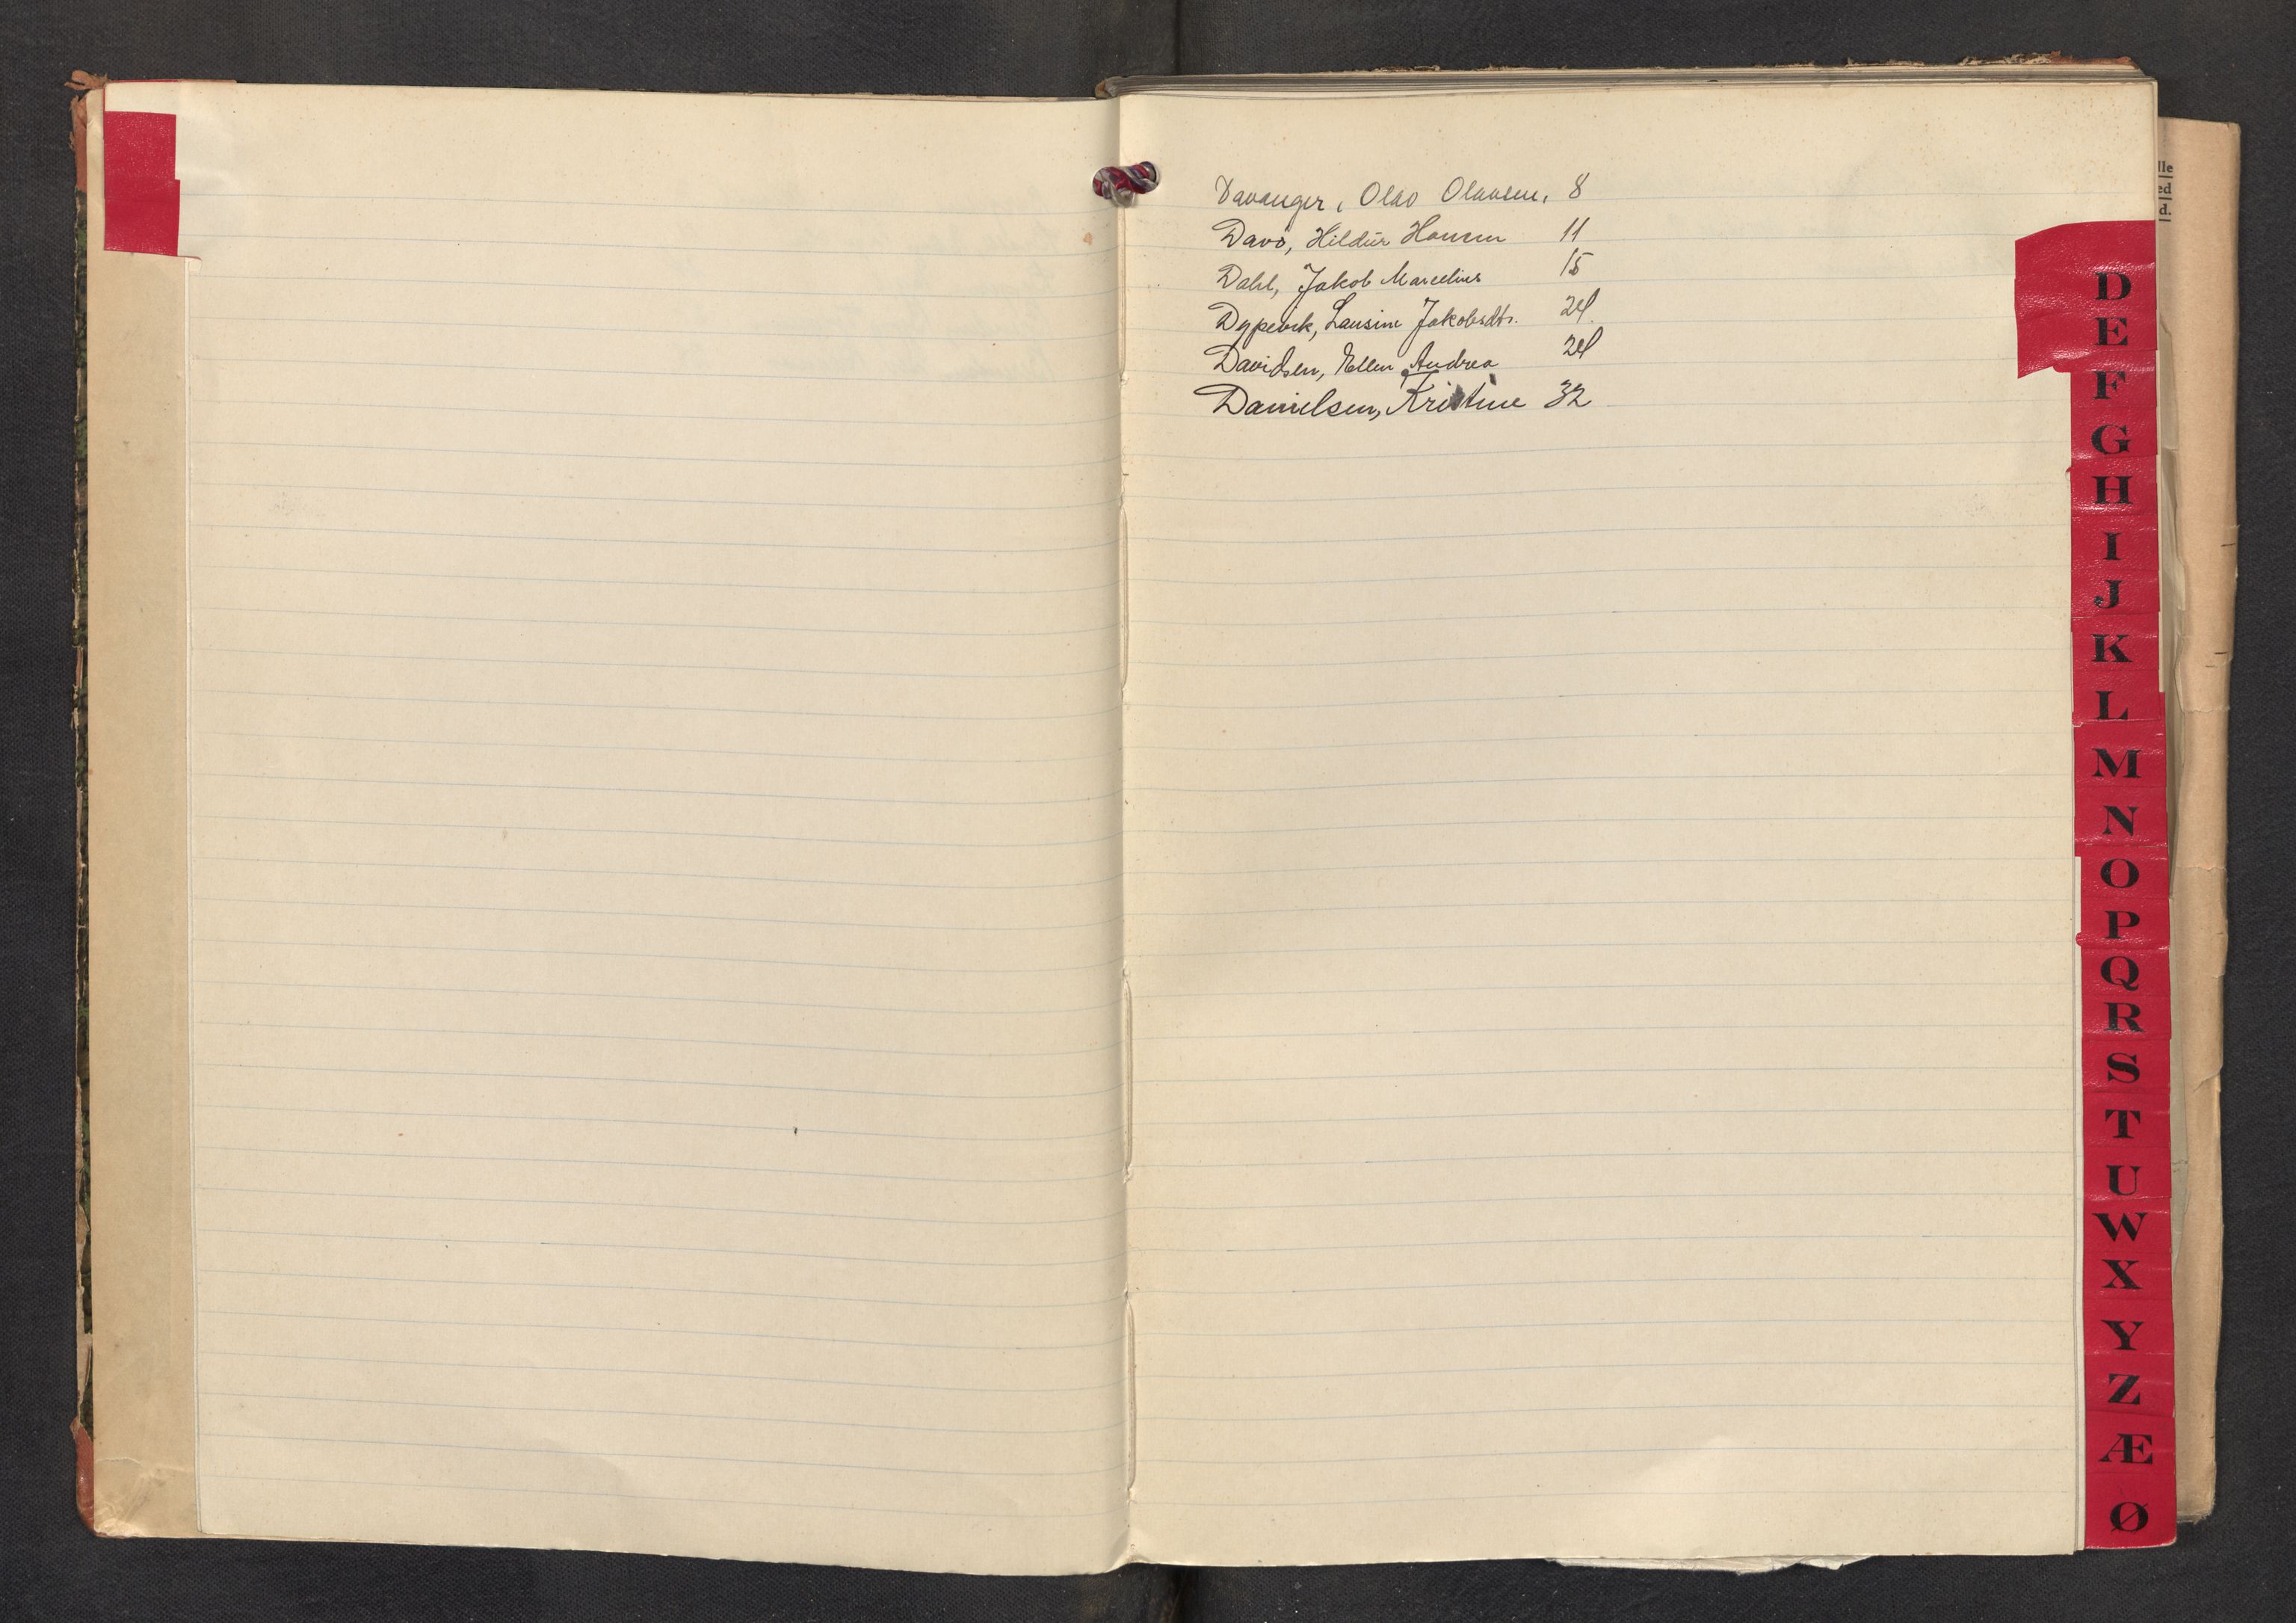 Davanger, Olav Olavsen, 8
Davø, Hildur Hansen 11
Dahl, Jakob Marcelius 15
Dypevik, Lausine Jakobsdtr. 24.
Davidsen, Ellen Andrea 24
Danielsen, Kristine 32
lle
ed
d.
D
E
F
G
H
I
J
K
L
M
N
O
P
Q
R
S
T
U
W
X
Y
Z
Æ
Ø